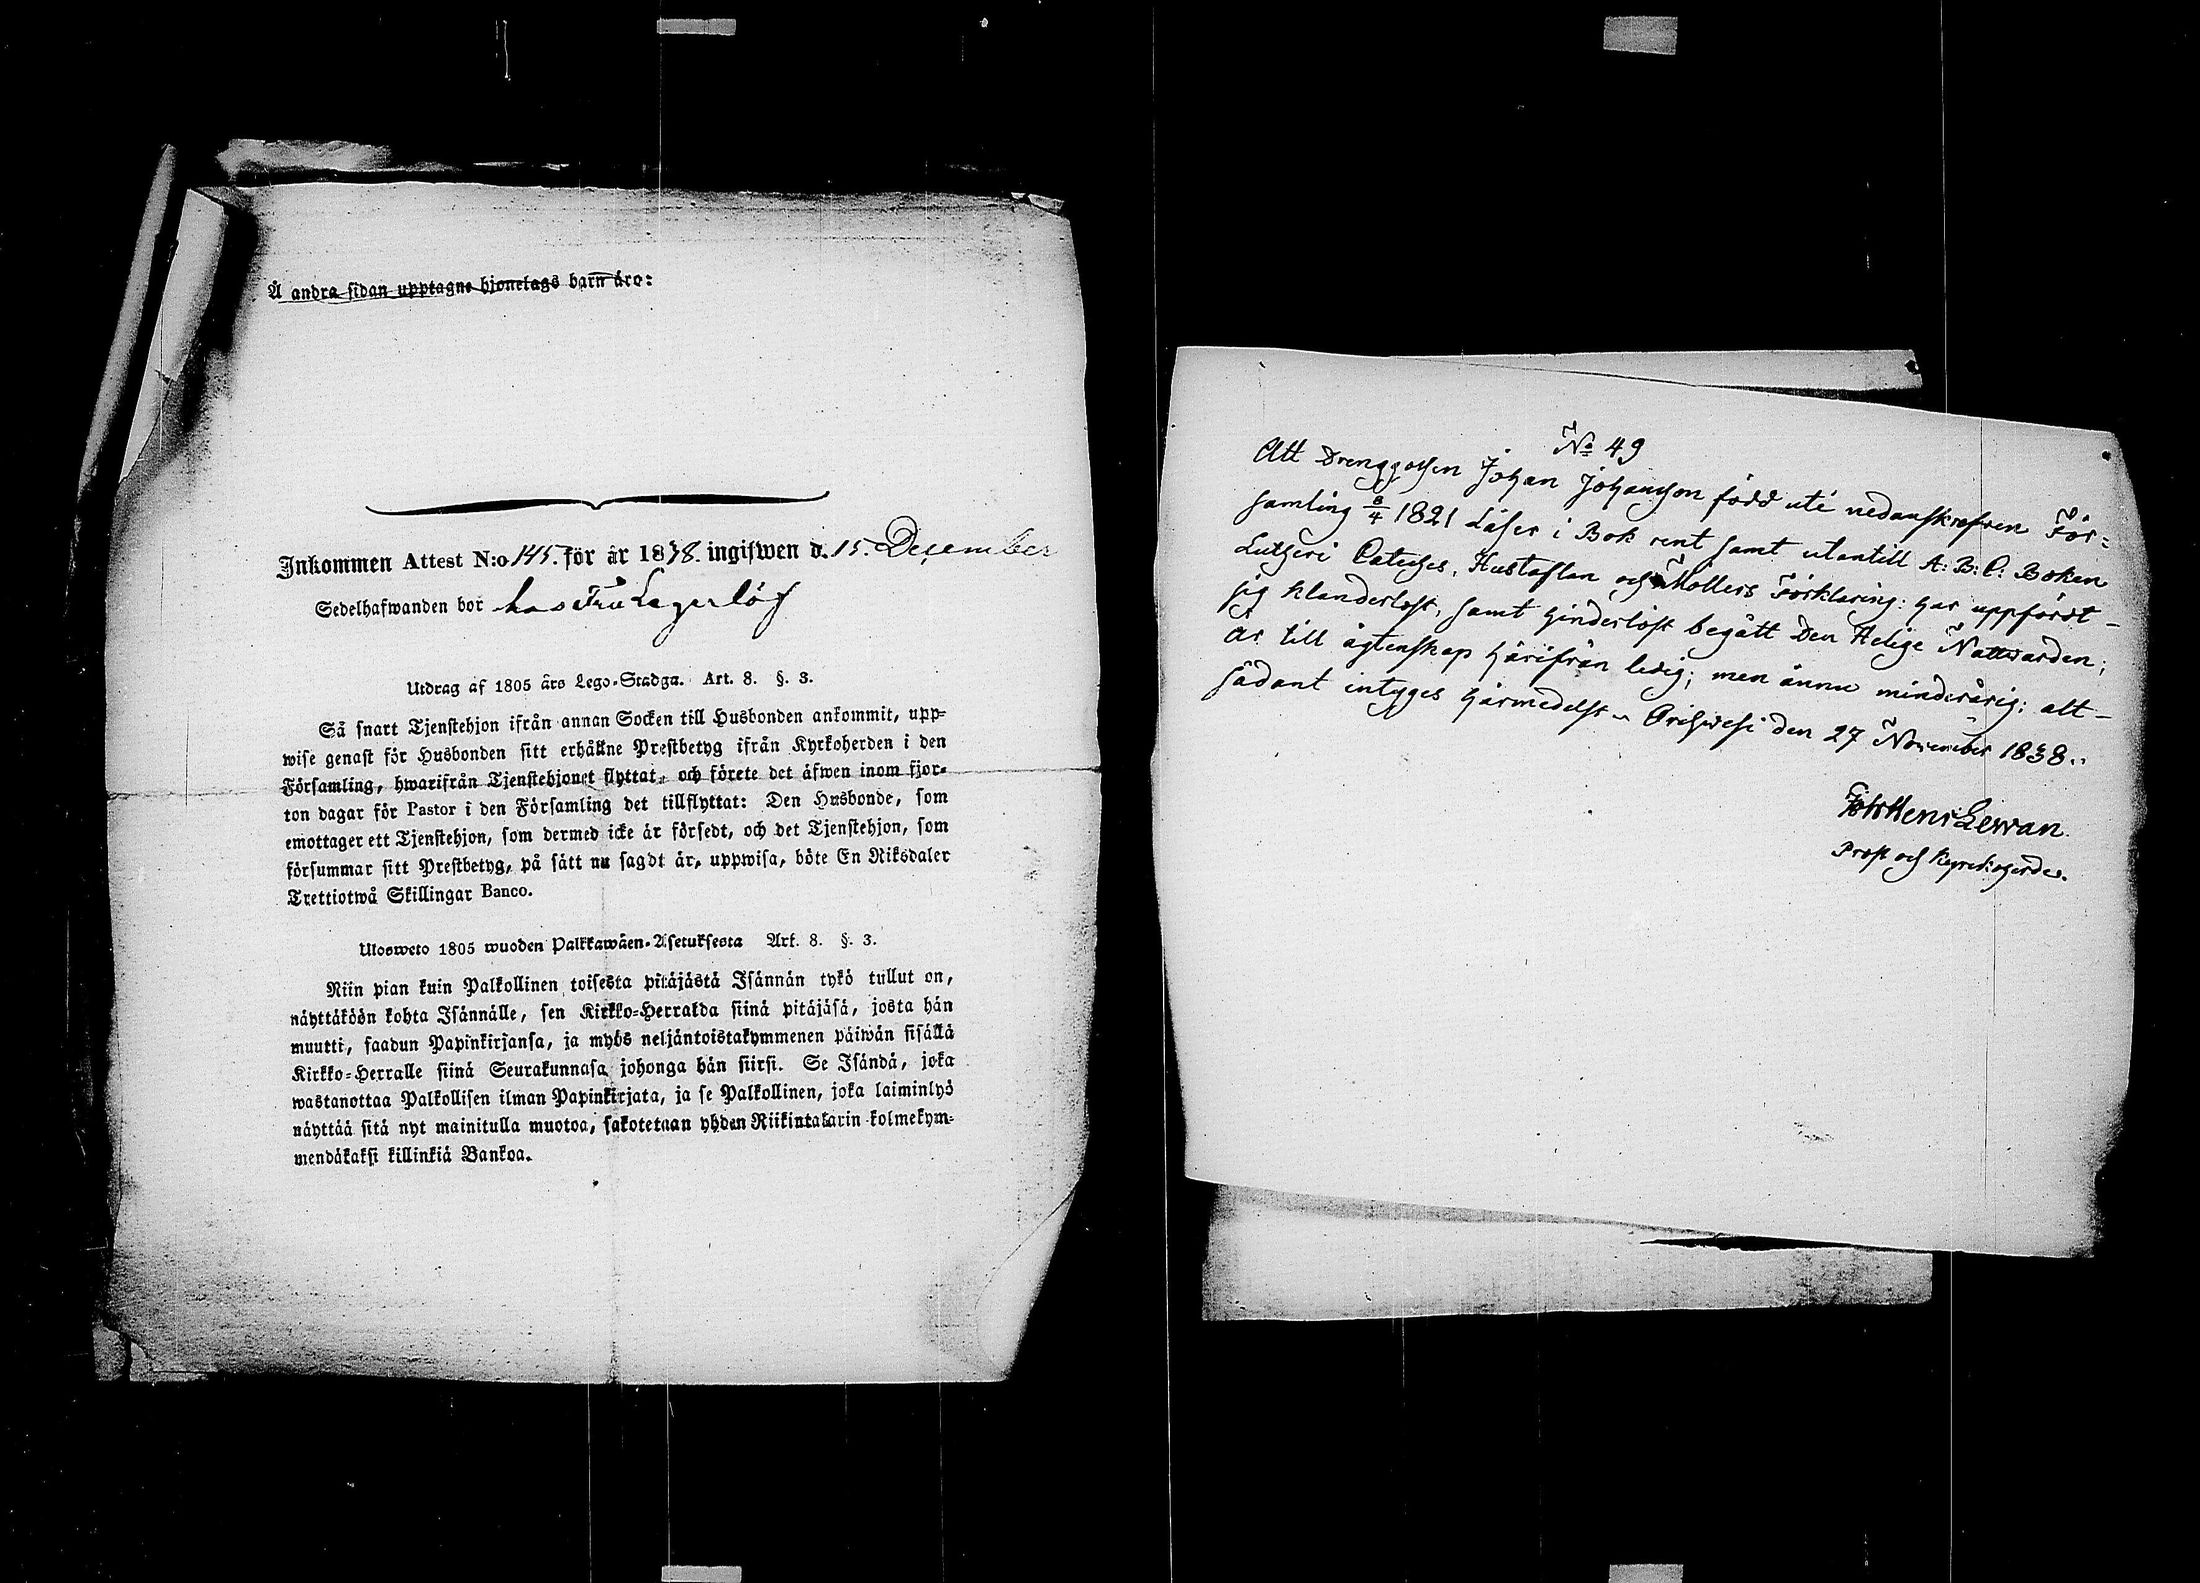 Å andra sidan upptagne hjonelags barn äro:
Inkommen Attest N:o 145. för år 1838. ingifwen d. 15. December
Sedelhafwanden bor hos Fru Lagerlöf
Utdrag af 1805 års Lego-Stadga. Art. 8. §. 3.
Så snart Tjenstehjon ifrån annan Socken till Husbonden ankommit, upp-
wise genast för Husbonden sitt erhållne Prestbetyg ifrån Kyrkoherden i den
Församling, hwarifrån Tjenstehjonet flyttat, och förete det äfwen inom fjor-
ton dagar för Pastor i den Församling det tillflyttat: Den Husbonde, som
emottager ett Tjenstehjon, som dermed icke är försedt, och det Tjenstehjon, som
försummar sitt Prestbetyg, på sätt nu sagdt är, uppwisa, böte En Riksdaler
Trettiotwå Skillingar Banco.
Ulosweto 1805 wuoden Palkkawäen-Asetuksesta Art. 8. §. 3.
Niin pian kuin Palkollinen toisesta pitäjästä Isännän tykö tullut on,
näyttäköön kohta Isännälle, sen Kirkko-Herralda siinä pitäjäsä, josta hän
muutti, saadun Papinkirjansa, ja myös neljäntoistakymmenen päiwän sisällä
Kirkko-Herralle siinä Seurakunnasa johonga hän siirsi. Se Isändä, joka
wastanottaa Palkollisen ilman Papinkirjata, ja se Palkollinen, joka laiminlyö
näyttää sitä nyt mainitulla muotoa, sakotetaan yhden Riikintalarin kolmekym-
mendäkaksi killinkiä Bankoa.
No 49
Att Drenggossen Johan Johansson född uti nedanskrefven För=
samling 8/4 1821 Läser i Bok rent samt utantill A: B: C: Boken
Lutheri Cateches, Hustaflan och Möllers Förklaring: har uppfördt
sig klanderlöst, samt hinderlöst begått Den Helige Nattwarden;
är till ägtenskap härifrån ledig; men ännu minderårig: alt-
sådant intyges härmedelst Orihwesi den 27 November 1838..
Joh Henr Lewan.
Prost och Kyrckoherde.